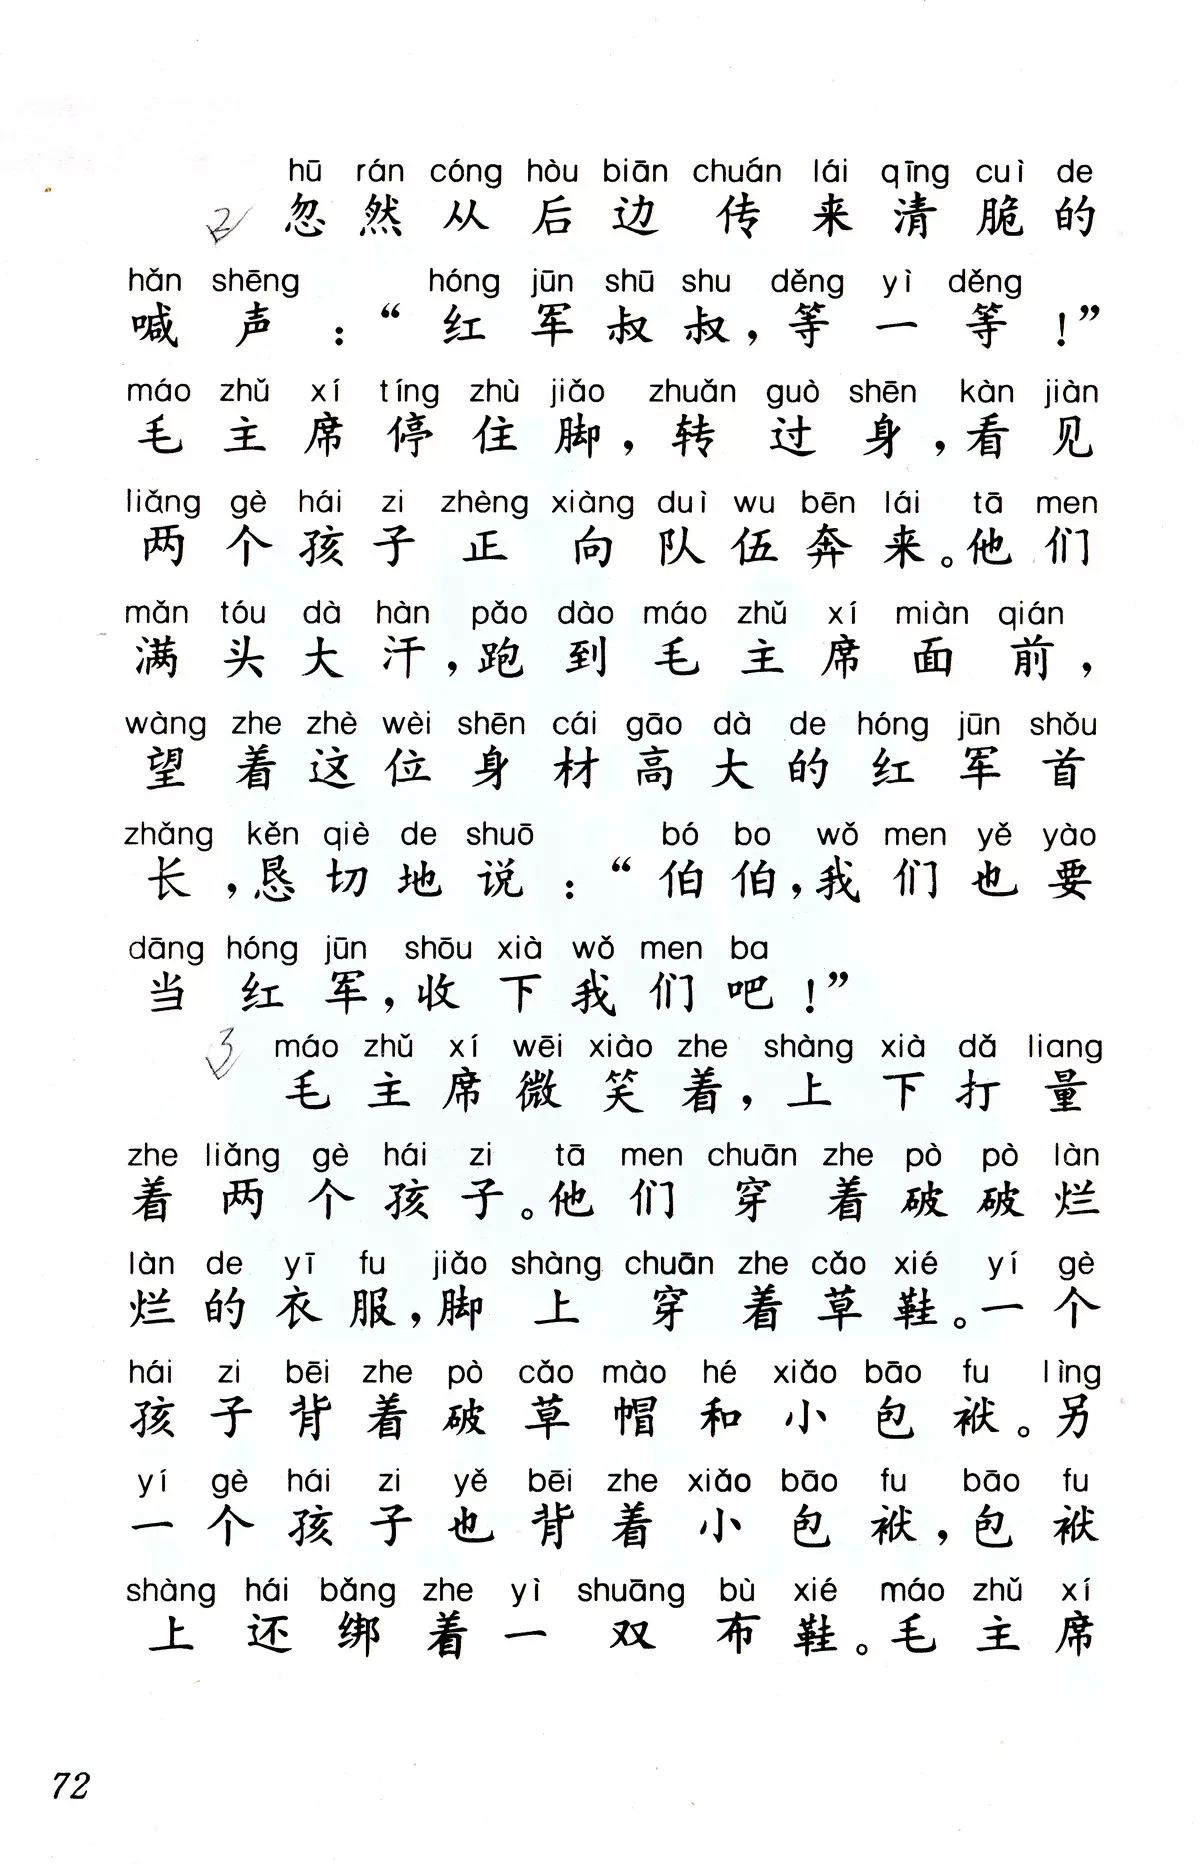 hū rán cóng hòu biān chuán lái qīng cuì de
2 忽然从后边传来清脆的
hǎn shēng hóng jūn shū shu děng yì děng
喊声：“红军叔叔，等一等！”
máo zhǔ xí tíng zhù jiǎo zhuǎn guò shēn kàn jiàn
毛主席停住脚，转过身，看见
liǎng gè hái zi zhèng xiàng duì wu bēn lái tā men
两个孩子正向队伍奔来。他们
mǎn tóu dà hàn pǎo dào máo zhǔ xí miàn qián
满头大汗，跑到毛主席面前，
wàng zhe zhè wèi shēn cái gāo dà de hóng jūn shǒu
望着这位身材高大的红军首
zhǎng kěn qiè de shuō bó bo wǒ men yě yào
长，恳切地说：“伯伯，我们也要
dāng hóng jūn shōu xià wǒ men ba
当红军，收下我们吧！”
3 máo zhǔ xí wēi xiào zhe shàng xià dǎ liang
毛主席微笑着，上下打量
zhe liǎng gè hái zi tā men chuān zhe pò pò làn
着两个孩子。他们穿着破破烂
làn de yī fu jiǎo shàng chuān zhe cǎo xié yí gè
烂的衣服，脚上穿着草鞋。一个
hái zi bēi zhe pò cǎo mào hé xiǎo bāo fu lìng
孩子背着破草帽和小包袱。另
yí gè hái zi yě bēi zhe xiǎo bāo fu bāo fu
一个孩子也背着小包袱，包袱
shàng hái bǎng zhe yì shuāng bù xié máo zhǔ xí
上还绑着一双布鞋。毛主席
72